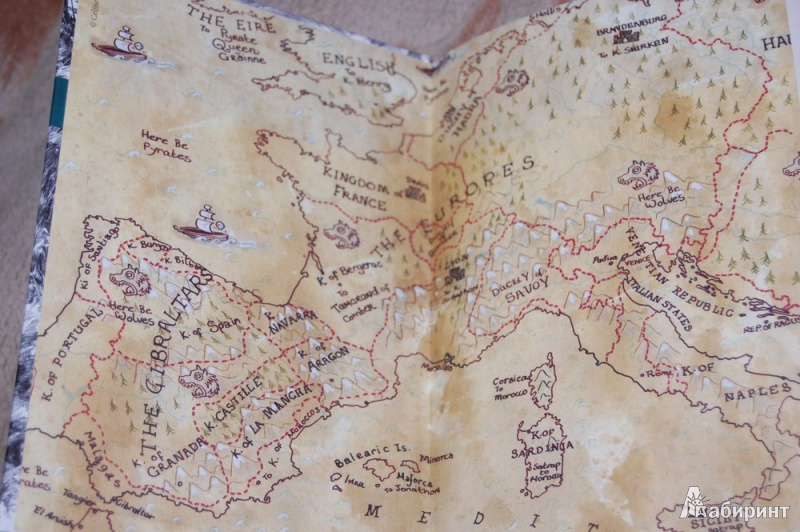 THE EIRE
To Pyrate
Queen
Grainne
ENGLISH
To
K. Henry
BRANDENBURG
TO K. SHIRKEN
HAU
Here Be
Pyrates
KINGDOM of
FRANCE
THE EUROPES
Here Be
Wolves
K. of Santiago
K. Burgos
K. Bilbao
Here Be
Wolves
THE GIBRALTARS
K. of Spain
K. of PORTUGAL
K. of
NAVARRA
K. of
ARAGON
K. of Bergerac
to
LYON
DUCHY of
SAVOY
Padua
VENICE
VENETIAN REPUBLIC
ITALIAN STATES
REP. of RAGUS
Rome
K. OF
NAPLES
K. CASTILLE
K. of LA MANCHA
K. of
GRANADA
To K. of Morocco
Malagas
Here Be
Pyrates
Tangier
Gibraltar
Corsica
To
Morocco
K. OF
SARDINIA
Satrap
to
Morocco
Balearic Is.
Minorca
Ibiza
Majorca
To Jonathon
M E D I T
SICIL
Лабиринт